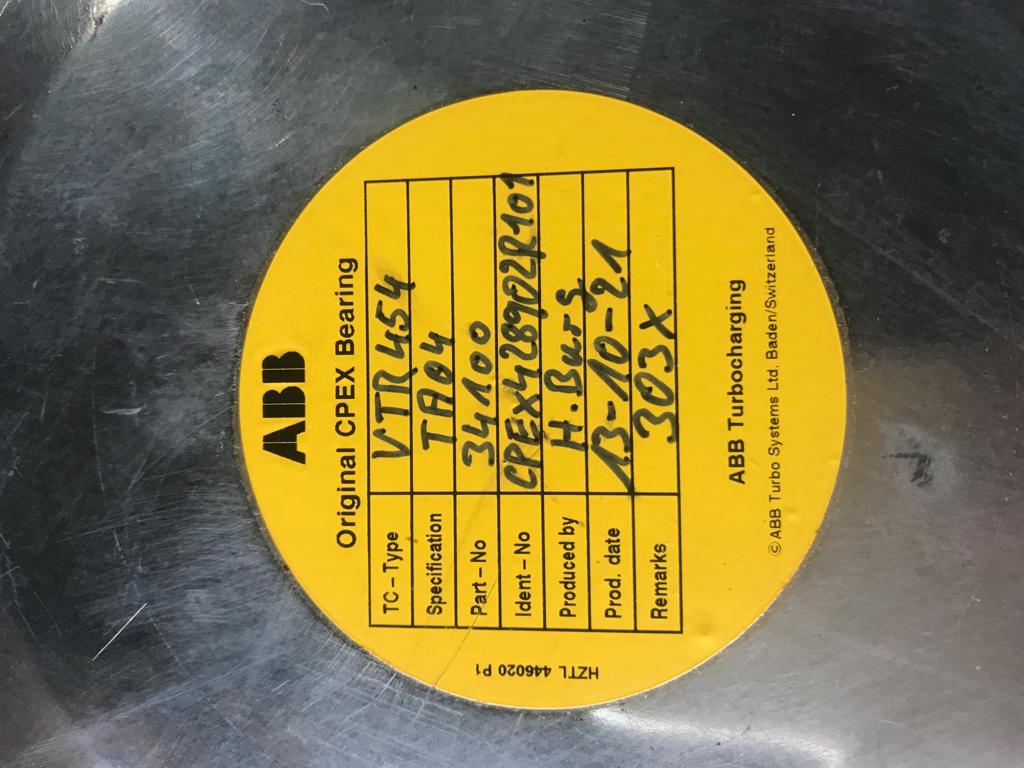 ABB
Original CPEX Bearing
TC-Type VTR 454
Specification TA04
Part-No 34100
Ident-No CPEX428902R101
Produced by H.Burg
Prod. date 13-10-21
Remarks 303X
ABB Turbocharging
©ABB Turbo Systems Ltd, Baden/Switzerland
HZTL 446020 P1